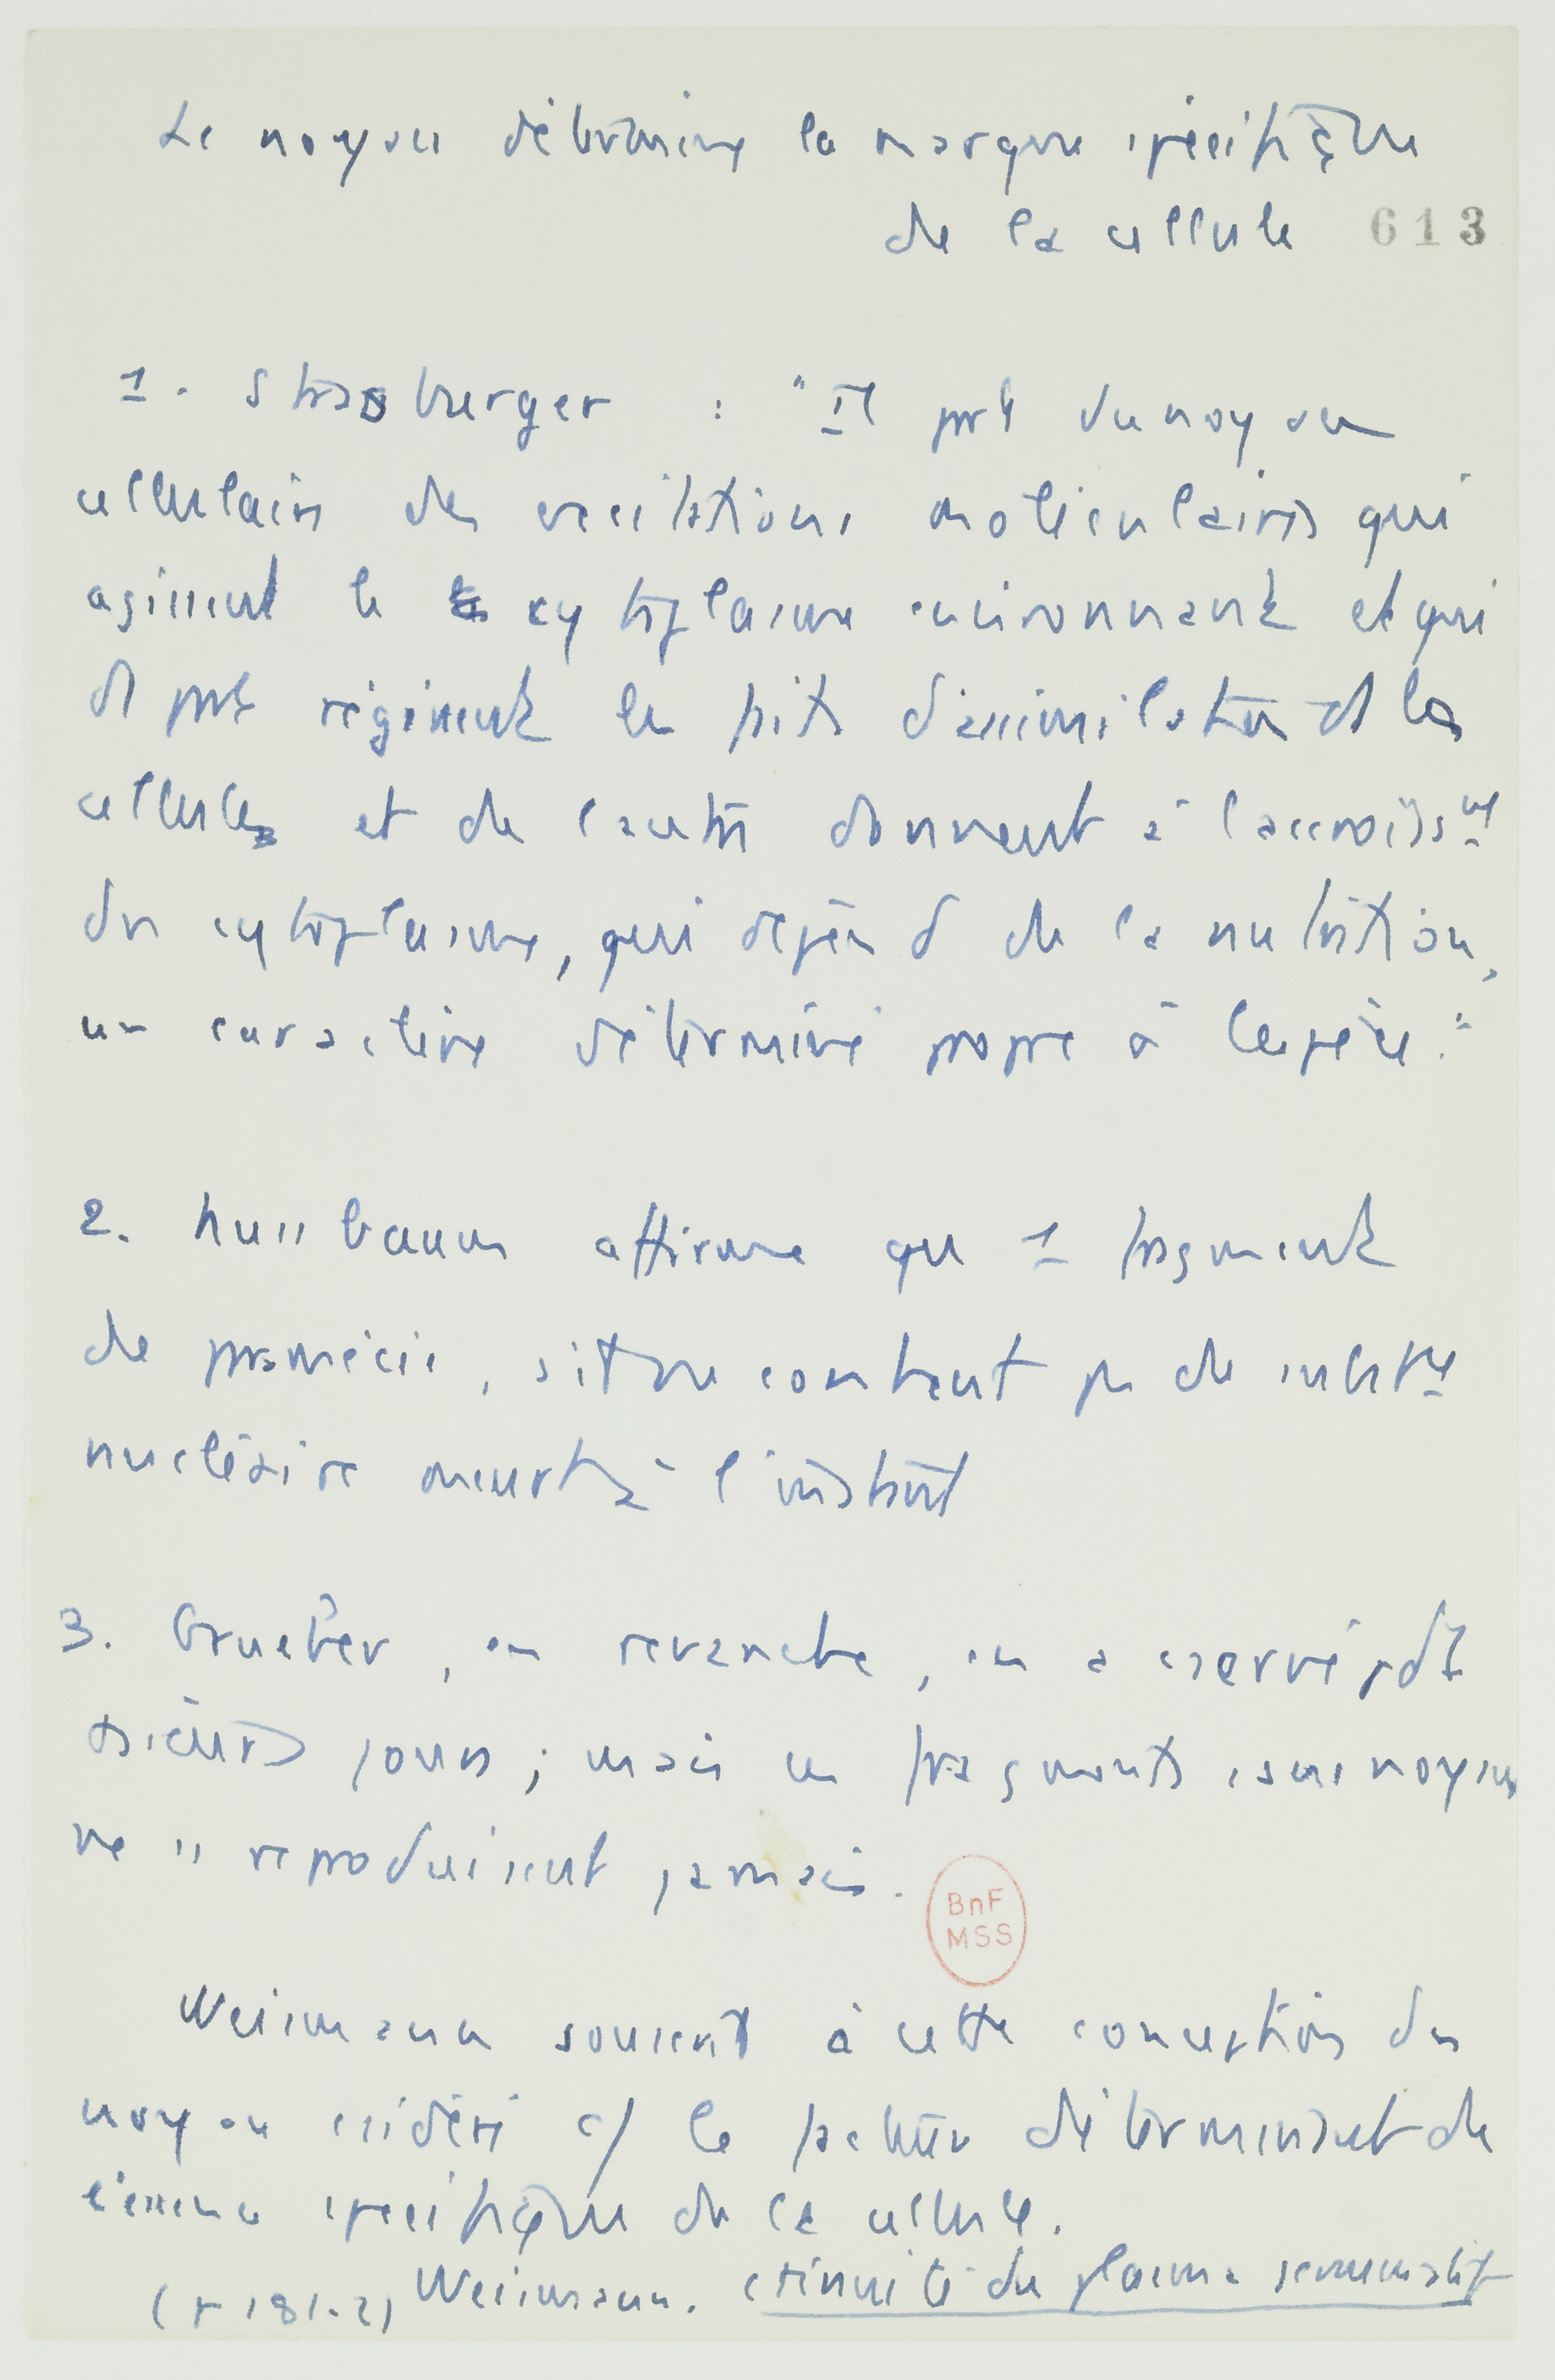 Le noyau détermine la marque spécifique
de la cellule 613
1. Strasburger : "Il part du noyau
cellulaire des excitations moléculaires qui
agissent le cytoplasme environnant et qui
d' part régissent les d'assimilation ds la
cellule et de l'autre donnent à l'accroisst
du cytoplasme, qui dépend de la nutrition,
un caractère déterminé propre à l'espèce."
2. Nussbaum affirme que 1 fragment
de paramécie, s'il ne contient pas de substce
nucléaire meurt à l'instant
3. Gruber, en revanche, en a cservé pdt
jours ; mais ces fragments sans noyau
ne se reproduisent jamais.
BnF
MSS
Weismann souscrit à cette conception du
noyau csidéré c/ le facteur déterminant de
l'essence spécifique de la cellule.
(p 181-2) Weismann. Ctinuité du plasma germinatif